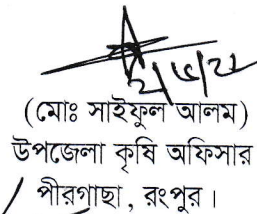 (মোঃ সাইফুল আলম)
উপজেলা কৃষি অফিসার
পীরগাছা, রংপুর।